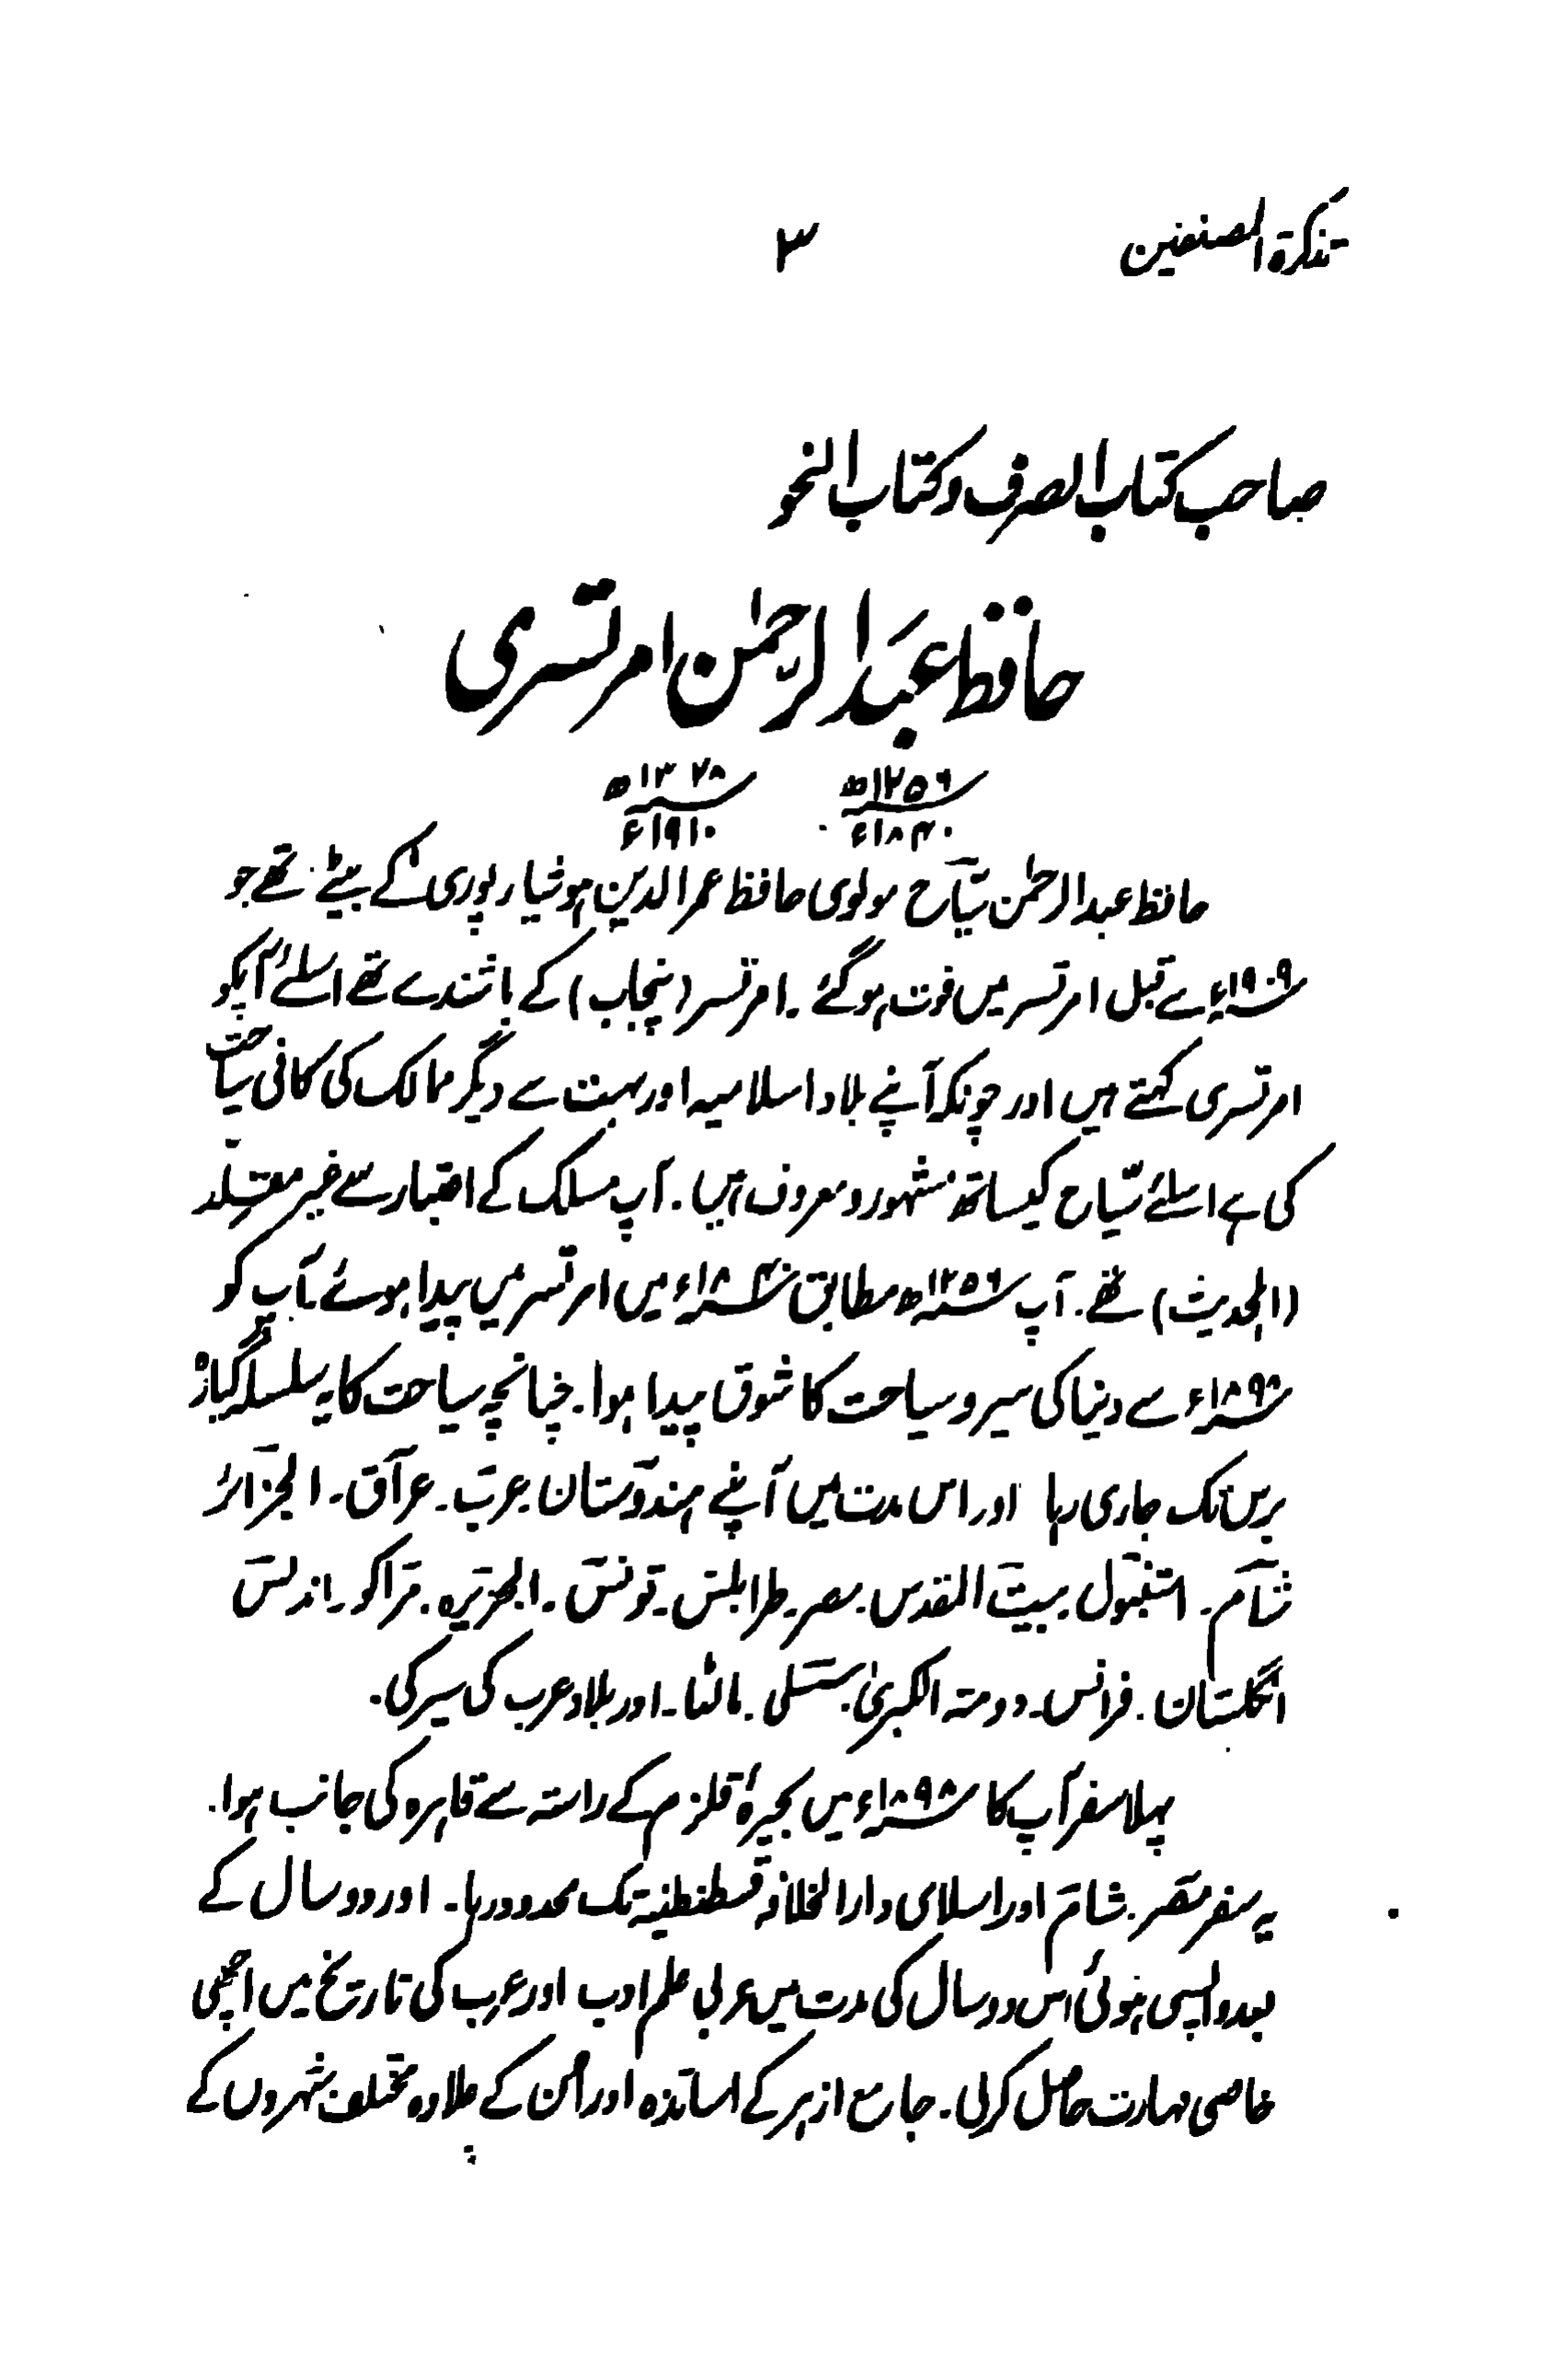 تذکرۃ المصنفین
۳
صاحب کتاب الصرف و کتاب النحو
حافظ عبدالرحمٰن امرتسری
۱۲۵۶ھ ۱۳۲۸ھ
۱۸۴۰ء ۱۹۱۰ء
حافظ عبدالرحمٰن سیّاح مولوی حافظ عمرالدین ہوشیارپوری کے بیٹے تھے جو
۱۹۰۹ء سے قبل امرتسر میں فوت ہوگئے۔ امرتسر (پنجاب) کے باشندے تھے اسلئے آپکو
امرتسری کہتے ہیں اور چونکہ آپنے بلاد اسلامیہ اور بہت سے دیگر ممالک کی کافی سیاحت
کی ہے اسلئے سیّاح کیساتھ مشہور و معروف ہیں۔ آپ مسلک کے اعتبار سے غیر مقلد
(اہلحدیث) تھے۔ آپ ۱۲۵۶ھ مطابق ۱۸۴۰ء میں امرتسر میں پیدا ہوئے۔ آپ کو
۱۸۹۸ء سے دنیا کی سیر و سیاحت کا شوق پیدا ہوا۔ چنانچہ سیاحت کا یہ سلسلہ گیارہ
برس تک جاری رہا اور اس مدت میں آپنے ہندوستان۔ عرب۔ عراق۔ الجزائر
شام۔ استنبول۔ بیت المقدس۔ مصر۔ طرابلس۔ تونس۔ الجزیرہ۔ مراکو۔ اندلس
انگلستان۔ فرانس۔ رومتہ الکبریٰ۔ سسلی۔ مالٹا۔ اور بلاد عرب کی سیر کی۔
پہلا سفر آپ کا ۱۸۹۸ء میں بحیرۂ قلزم کے راستہ سے قاہرہ کی جانب ہوا۔
یہ سفر مصر۔ شام اور اسلامی دارالخلافہ قسطنطنیہ تک محدود رہا۔ اور دو سال کے
بعد واپسی ہوئی اس دو سال کی مدت میں عربی علم ادب اور عرب کی تاریخ میں اچھی
خاصی مہارت حاصل کرلی۔ جامع ازہر کے اساتذہ اور اُن کے علاوہ مختلف شہروں کے